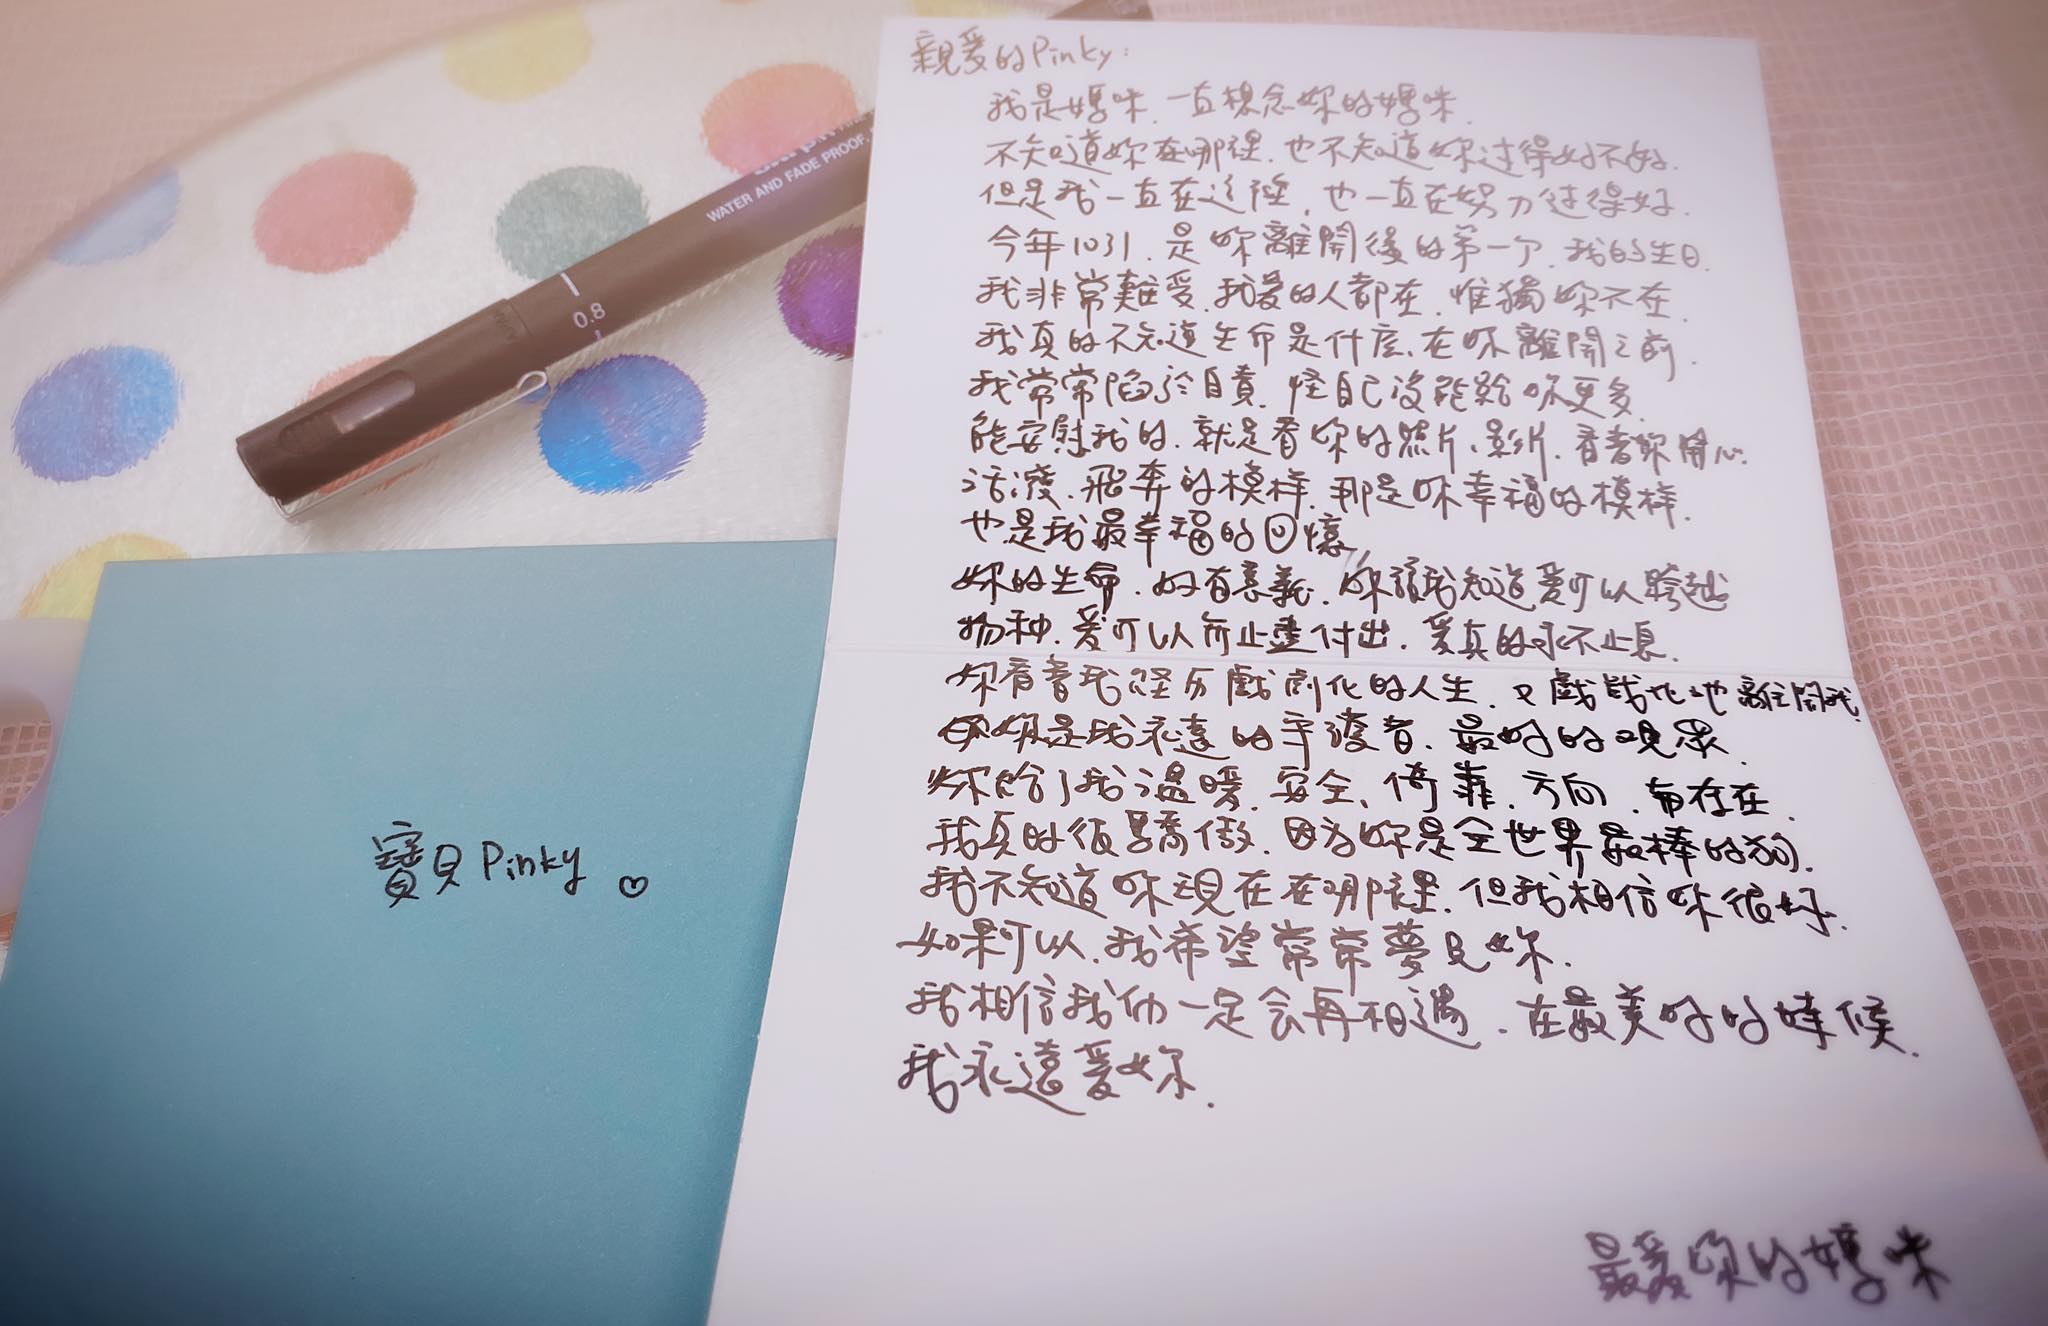 WATER AND FADE PROOF.
0.8
寶貝Pinky ♡
親愛的Pinky:
我是媽咪.一直想念妳的媽咪.
不知道妳在哪裡.也不知道妳過得好不好.
但是我一直在這陸,也一直在努力過得好.
今年1031.是妳離開後的第一个.我的生日.
我非常難受.我愛的人都在.惟獨妳不在.
我真的不知道生命是什麼.在妳離開之前.
我常常陷於自責.怪自己沒能給妳更多.
能安慰我的.就是看妳的照片、影片.看著妳開心.
活潑.飛奔的模样.那是妳幸福的模样.
也是我最幸福的回憶
妳的生命.好有意義.妳讓我知道愛可以跨越
物种.愛可以无止盡付出.愛真的永不止息.
妳看著我经历戲劇化的人生.又戲劇化地離開我.
妳是我永遠的守護者.最好的观眾.
妳给了我溫暖.安全、倚靠.方向.
我真的很驕傲.因为妳是全世界最棒的狗.
我不知道妳現在在哪裡.但我相信妳很好.
如果可以.我希望常常夢見妳.
我相信我们一定会再相遇.在最美好的時候.
我永遠愛妳.
最愛妳的媽咪